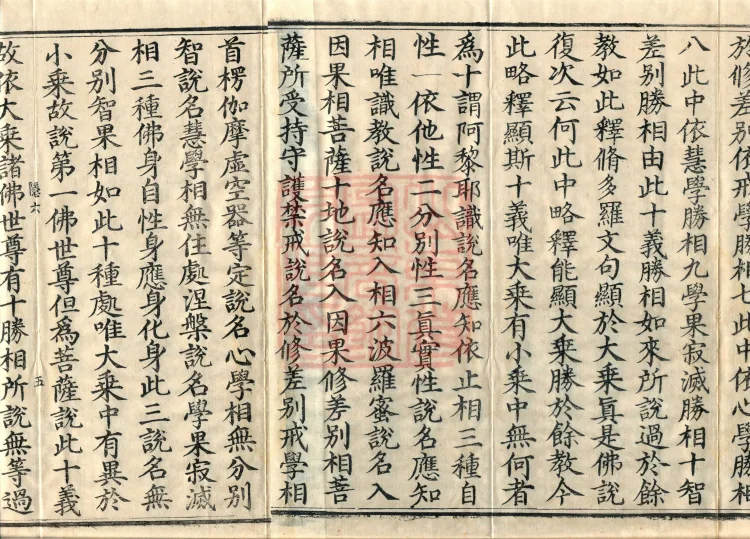 於修差別依戒學勝相七此中依心學勝相
八此中依慧學勝相九學果寂滅勝相十智
差別勝相由此十義勝相如來所說過於餘
教如此釋脩多羅文句顯於大乗眞是佛說
復次云何此中略釋能顯大乗勝於餘教今
此略釋顯斯十義唯大乗有小乗中無何者
爲十謂阿黎耶識說名應知依止相三種自
性一依他性二分別性三眞實性說名應知
相唯識教說名應知入相六波羅蜜說名入
因果相菩薩十地說名入因果修差別相菩
薩所受持守護禁戒說名於修差別戒學相
首楞伽摩虛空器等定說名心學相無分別
智說名慧學相無住處涅槃說名學果寂滅
相三種佛身自性身應身化身此三說名無
分別智果相如此十種處唯大乗中有異於
小乗故說第一佛世尊但爲菩薩說此十義
故依大乗諸佛世尊有十勝相所說無等過
六
五